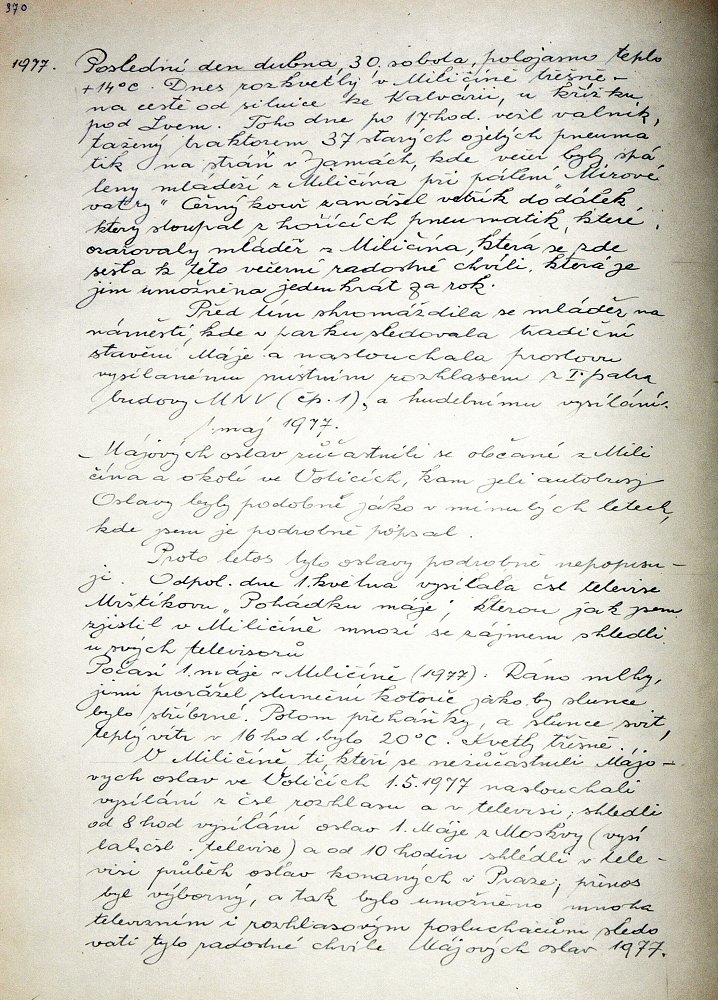 370
1977. Poslední den dubna, 30. sobota, polojasno teplo
+14°C. Dnes rozkvetly v Miličíně třešně –
na cestě od silnice ke Kalvárii, u křížku
pod Lvem. Toho dne po 17 hod. vezl valník,
tažený traktorem 37 starých ojetých pneuma
tik na stráň v Jamách, kde večer byly spá
leny mládeží z Miličína při pálení "Mírové
vatry" Černý kouř zanášel větřík do dálek
který stoupal z hořících pneumatik, které
ozařovaly mládež z Miličína, která se zde
sešla k této večerní radostné chvíli, která je
jim umožněna jeden krát za rok.
Před tím shromáždila se mládež na
náměstí, kde v parku sledovala tradiční
stavění Máje a naslouchala proslovu
vysílanému místním rozhlasem z I. patra
budovy MNV (čp. 1), a hudebnímu vysílání.
1 maj 1977.
– Májových oslav zúčastnili se občané z Mili
čína a okolí ve Voticích, kam jeli autobusy
Oslavy byly podobně jako v minulých letech,
kde jsem je podrobně popsal.
Proto letos tyto oslavy podrobně nepopisu–
ji. Odpol. dne 1. května vysílala čsl televise
Mrštíkovu "Pohádku máje", kterou jak jsem
zjistil v Miličíně mnozí se zájmem shledli
u svých televisorů
Počasí 1. máje v Miličíně (1977). Ráno mlhy,
jimi prorážel sluneční kotouč jako by slunce
bylo stříbrné. Potom přeháňky, a slunce svit,
teplý vítr v 16 hod. bylo 20°C. Kvetly třešně.
V Miličíně, ti, kteří se nezúčastnili Májo–
vých oslav ve Voticích 1.5.1977 naslouchali
vysílání z čsl rozhlasu a v televisi, shledli
od 8 hod vysílání oslav 1. Máje z Moskvy (vysí
lala čsl. televise) a od 10 hodin shlédli v tele–
visi průběh oslav konaných v Praze, přenos
byl výborný, a tak bylo umožněno mnoha
televizním i rozhlasovým posluchačům sledo
vati tyto radostné chvíle Májových oslav 1977.